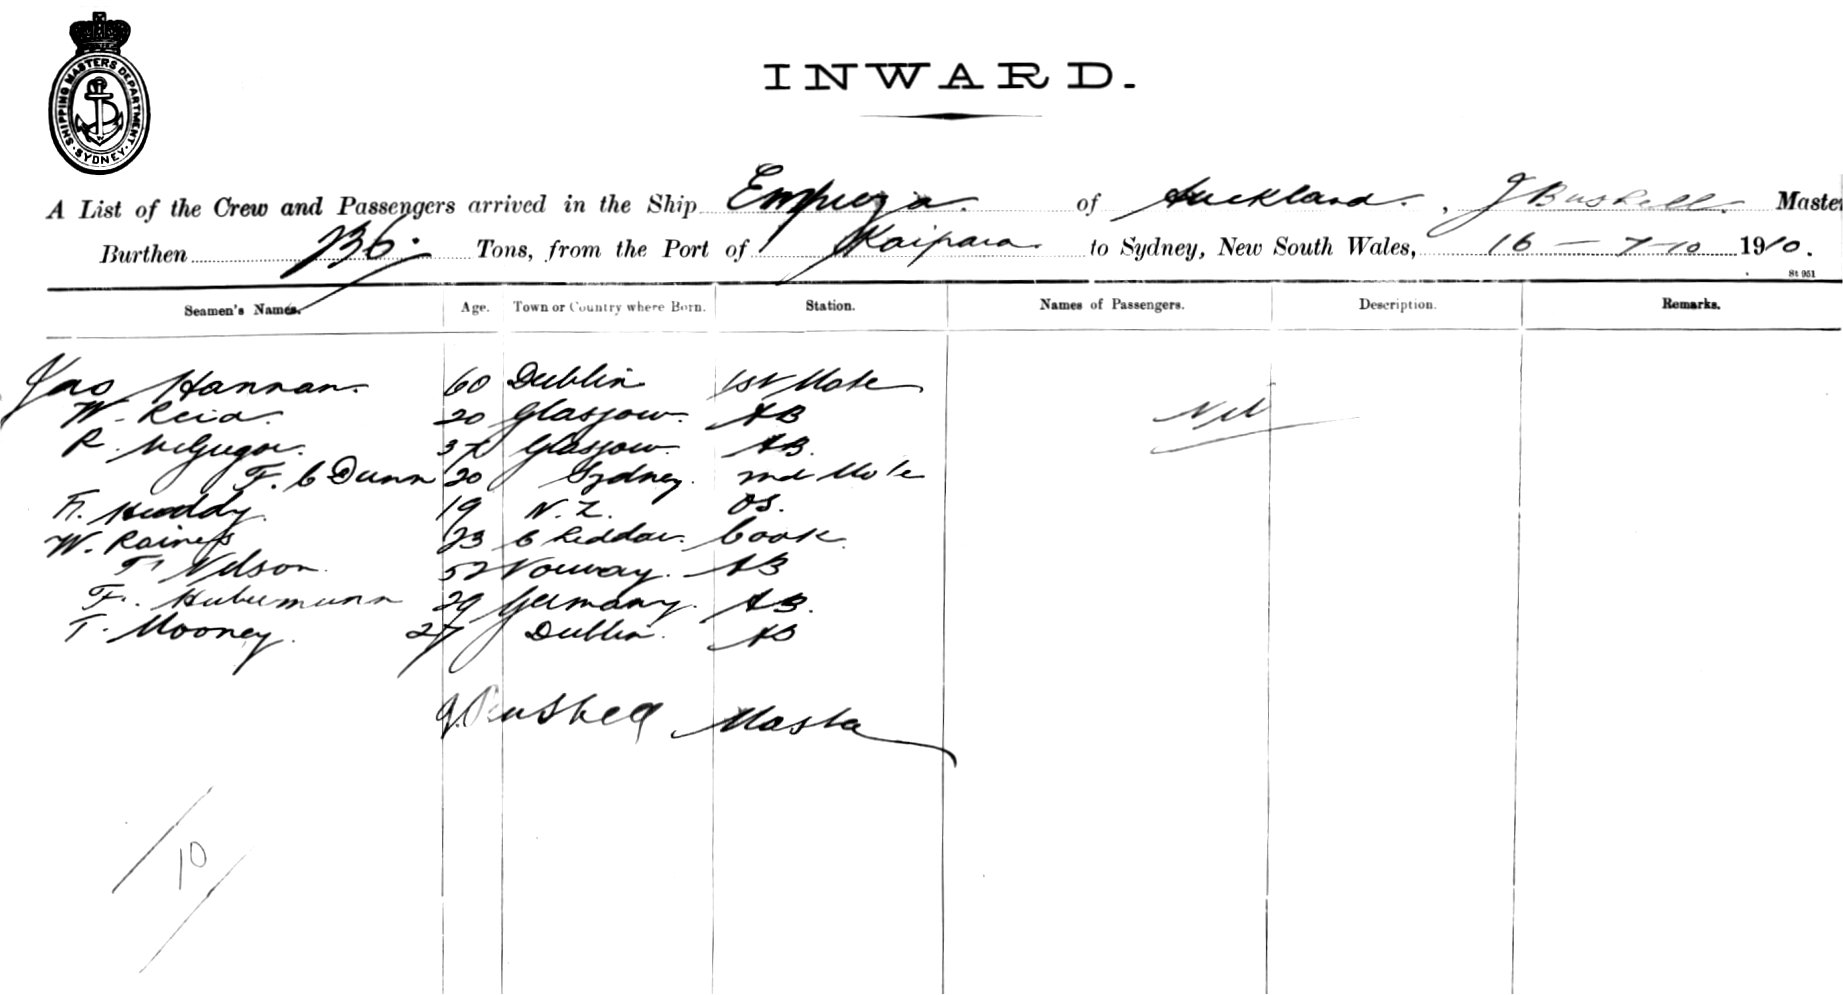 SHIPPING MASTERS DEPARTMENT. SYDNEY.
INWARD.
A List of the Crew and Passengers arrived in the Ship Empreza. of Auckland. , J Buskell. Master
Burthen Tons, from the Port of Kaipara. to Sydney, New South Wales, 16 - 7-10 1910.
St 951
Seamen's Names. Age. Town or Country where Born. Station. Names of Passengers. Description. Remarks.
Jas Hannan. 60 Dublin 1st Mate
W. Reid. 20 Glasgow. AB Nil
R. McGregor. Glasgow. AB.
F. C Dunn 20 Sydney. 2nd Mate
F. Huddy. 19 N.Z. OS.
W. Raines 23 Cook.
Nelson. 52 Norway. AB
F. Hubermann 29 Germany. AB.
T. Mooney. 27 Dublin. AB
J. Buskell Master
10